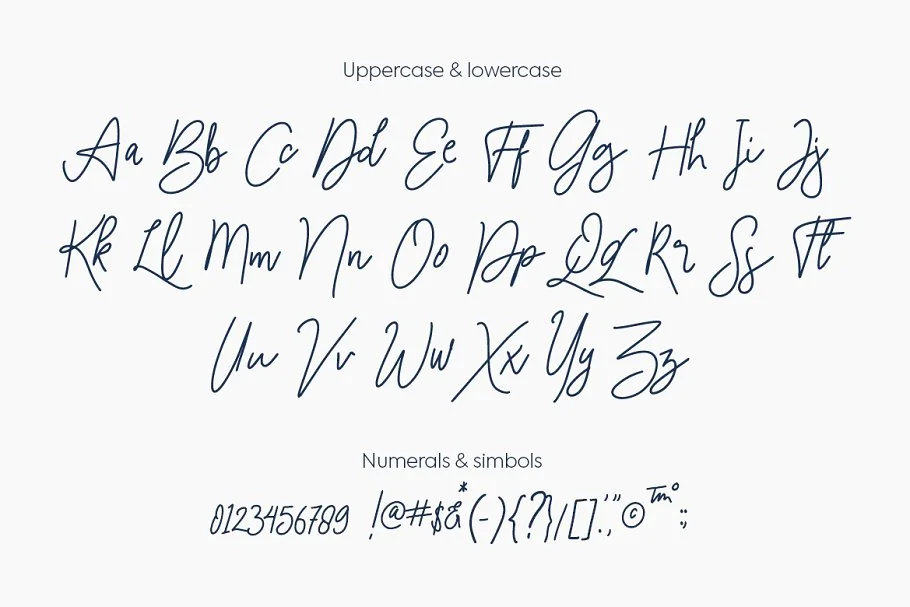 Uppercase & lowercase
Aa Bb Cc Dd Ee Ff Gg Hh Ii Jj
Kk Ll Mm Nn Oo Pp Qq Rr Ss Tt
Uu Vv Ww Xx Yy Zz
Numerals & simbols
0123456789 !@#$&*(-){?}/[].,'"©™°:;